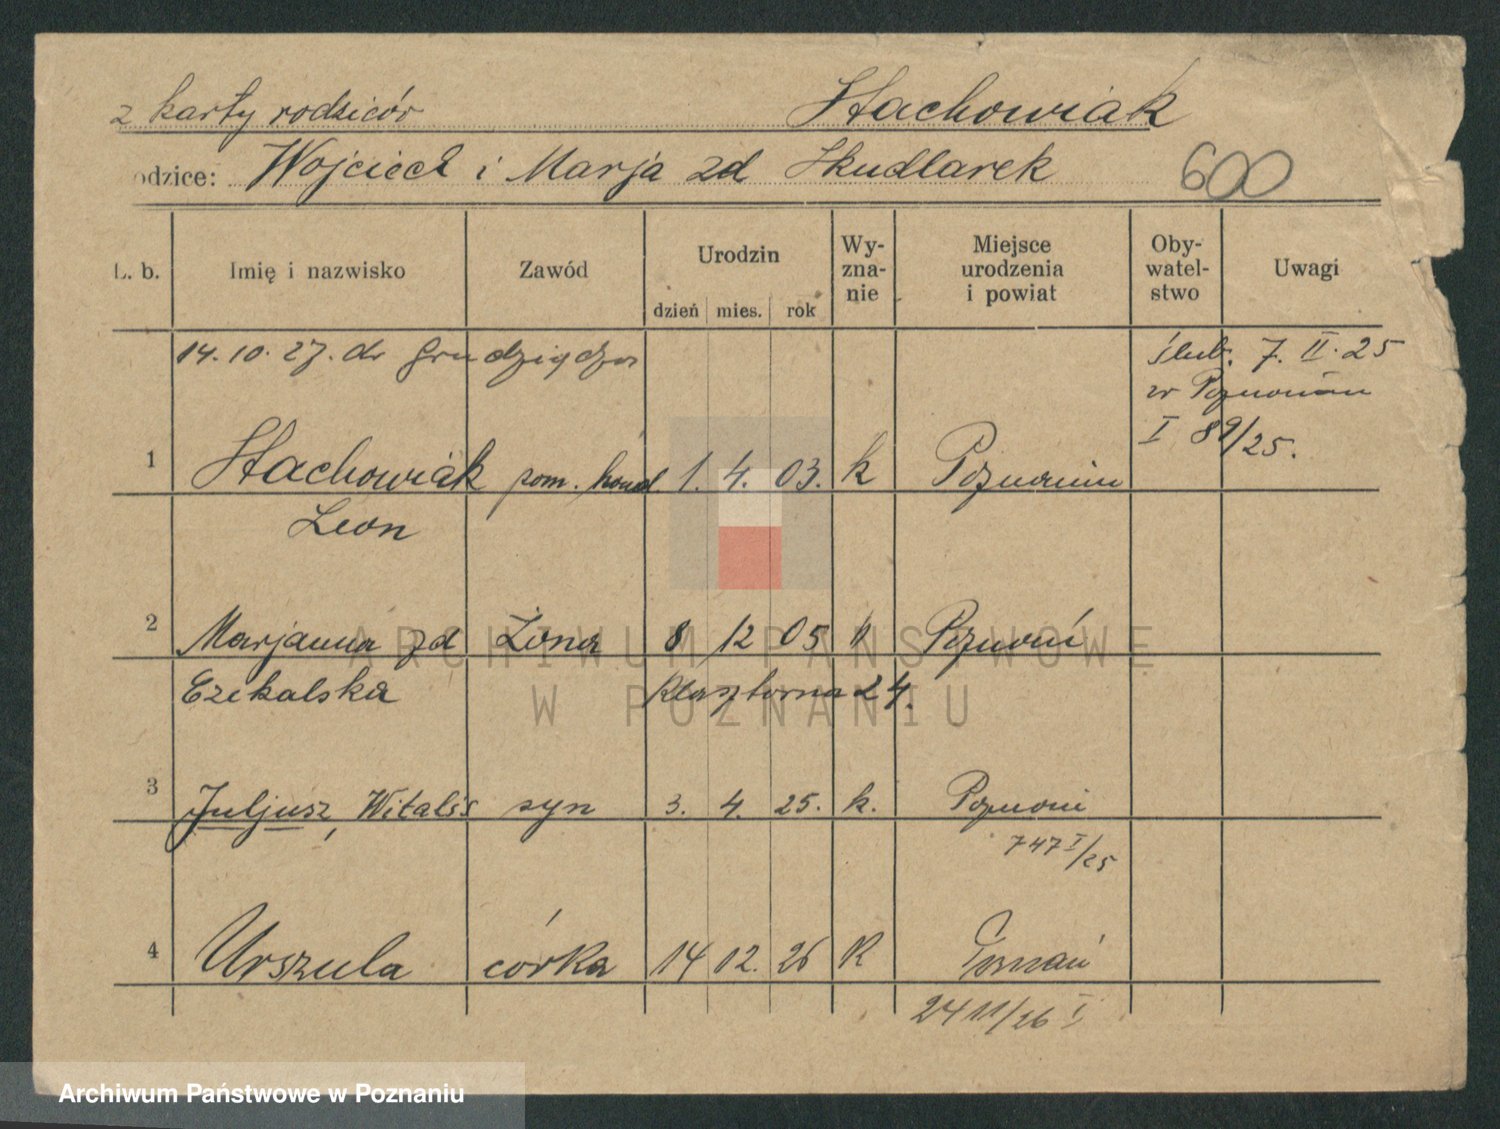 z karty rodziców Stachowiak
odzice: Wojciech i Marja zd Skudlarek 600
L. b. Imię i nazwisko Zawód Urodzin dzień mies. rok Wy-zna-nie Miejsce urodzenia i powiat Oby-watel-stwo Uwagi
14. 10. 27. do Grudziądza ślub. 7. II. 25
w Poznaniu
I 89/25.
1 Stachowiak pom. hand. 1. 4. 03. k Poznaniu
Leon
2 Marjanna zd Żona 8 12 05 k Poznań
Czekalska Klasztorna 24.
3 Juljusz, Witalis syn 3. 4. 25. k. Poznań
747 I/25
4 Urszula córka 14 12. 26 k Poznań
2411/26 I
ARCHIWUM PAŃSTWOWE
W POZNANIU
Archiwum Państwowe w Poznaniu